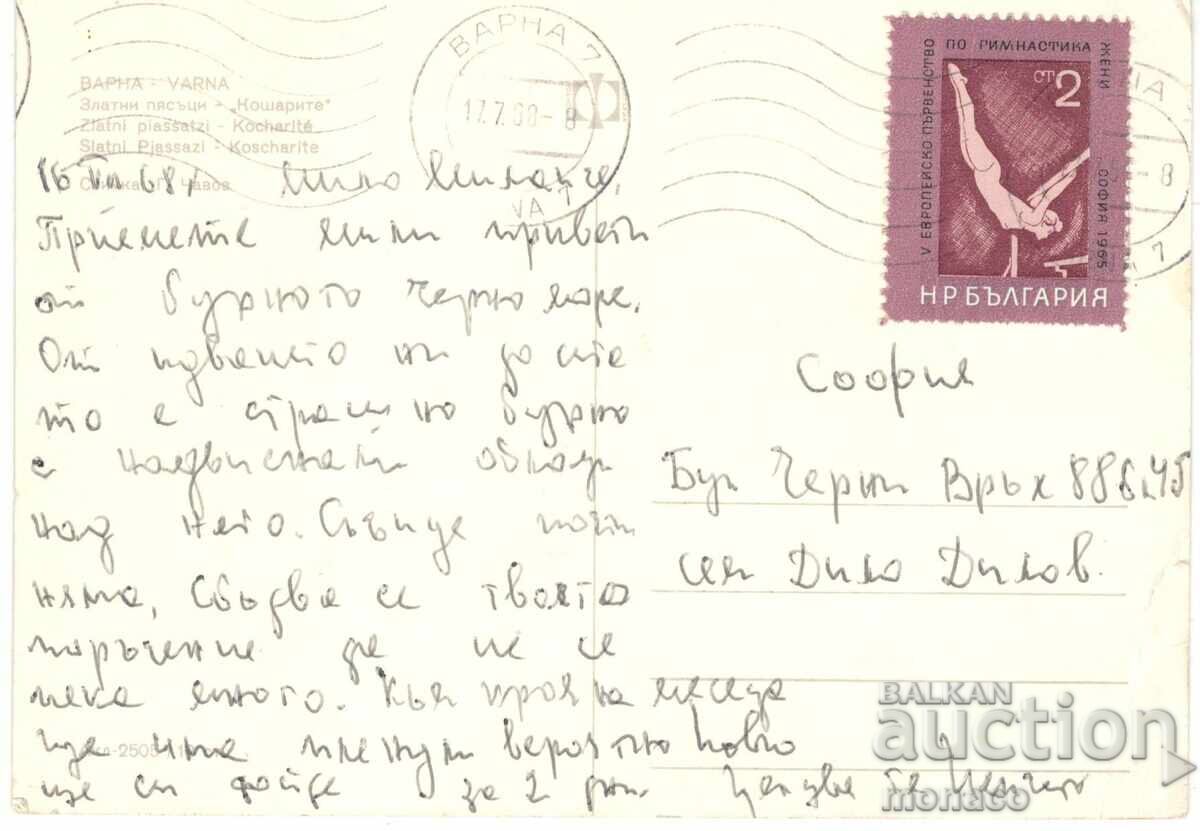 ВАРНА - VARNA
Златни пясъци - „Кошарите"
Zlatni piassatzi - Kocharité
Slatni Pjassazi - Koscharite
Снимка П. Чавов
ВАРНА 7
17.7.68-8
VA 7
V ЕВРОПЕЙСКО ПЪРВЕНСТВО
ПО ГИМНАСТИКА
ЖЕНИ
СОФИЯ 1965
СТ 2
НР БЪЛГАРИЯ
16 VII 68 г Мило
Приемете мили привети
от бурното Черно море.
От идването ни до сте
то е страшно бурно
с надвиснали облаци
над него. Слънце почти
няма, сбъдва се твоято
поръчение да не се
пека много. Към края на месеца
ще има вероятно
ще си дойде за 2 дни. Целува те
София
Бул Черни Връх 88 б. 45
сем Дило Дилов.
BALKAN
auction
monaco